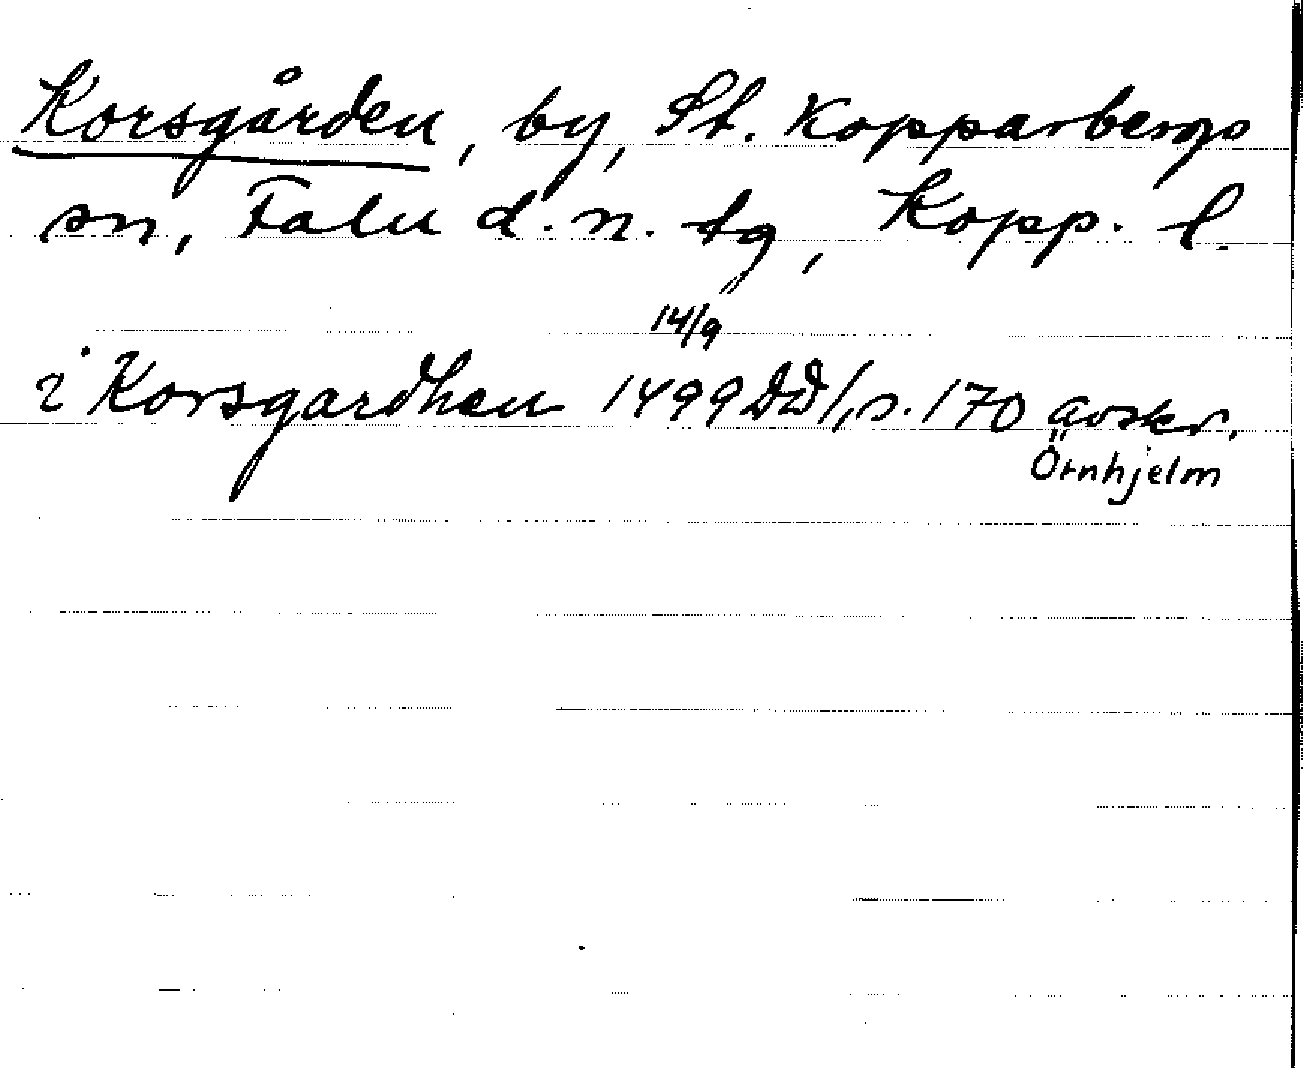 Korsgården, by, St. Kopparbergs
sn, Falu d. n. tg, Kopp. l.
14/9
i Korsgardhen 1499 DD/1, s. 170 avskr.
Örnhjelm